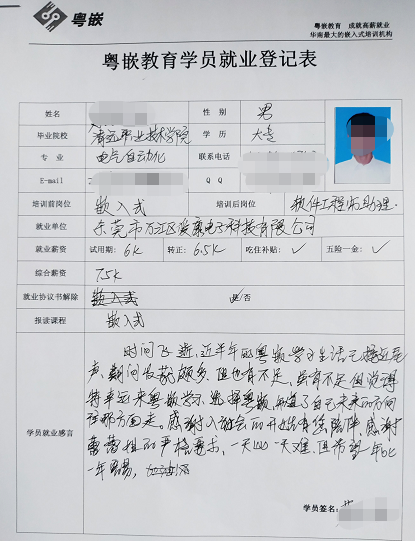 粤嵌
粤嵌教育 成就高薪就业
华南最大的嵌入式培训机构
粤嵌教育学员就业登记表
姓名 性别 男
毕业院校 清远职业技术学院 学历 大专
专业 电气自动化 联系电话
E-mail QQ
培训前岗位 嵌入式 培训后岗位 软件工程师助理
就业单位 东莞市万江区 电子科技有限公司
就业薪资 试用期: 6K 转正: 6.5K 吃住补贴: ✓ 五险一金: ✓
综合薪资 7.5K
就业协议书解除 嵌入式 是/否
报读课程 嵌入式
学员就业感言
时间飞逝,近半年的粤嵌学习生活已接近尾
声,期间收获颇多,但也有不足,虽有不足但觉得
来粤嵌学习,选择粤嵌,知道了自己未来的方向
感谢
姐的严格要求,一天 一天难,但希望一年比
一年容易,加油
学员签名: